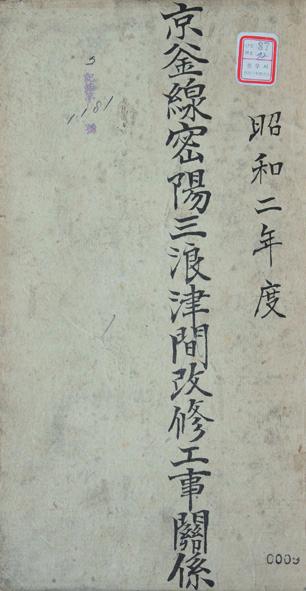 昭和二年度
京釜線密陽三浪津間改修工事關係
0009